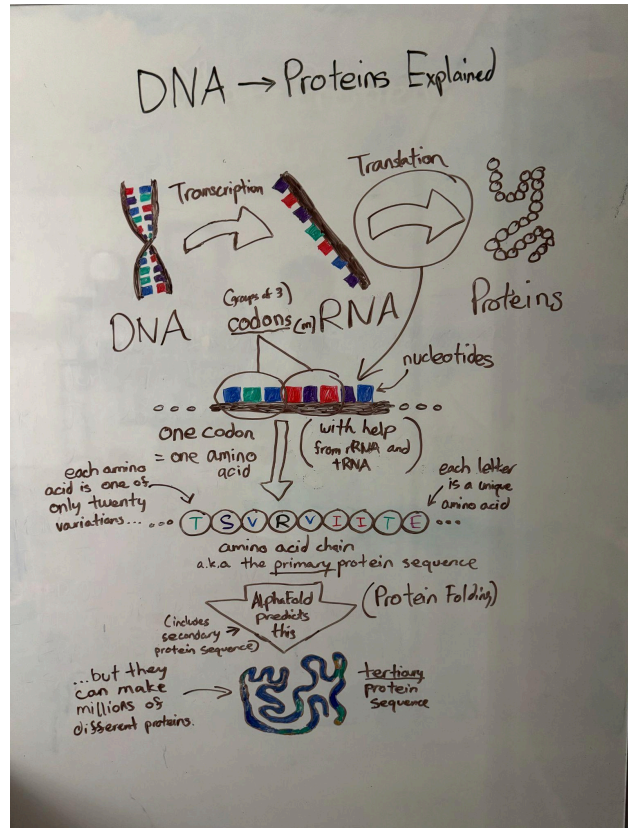 DNA → Proteins Explained
Transcription
Translation
DNA
(m)RNA
Proteins
(groups of 3)
codons
nucleotides
one codon
= one amino
acid
(with help
from rRNA and
tRNA)
each amino
acid is one of
only twenty
variations...
each letter
is a unique
amino acid
... T S V R V I I T E ...
amino acid chain
a.k.a the primary protein sequence
AlphaFold
predicts
this
(Protein Folding)
(includes
secondary
protein sequence)
...but they
can make
millions of
different proteins.
tertiary
protein
sequence